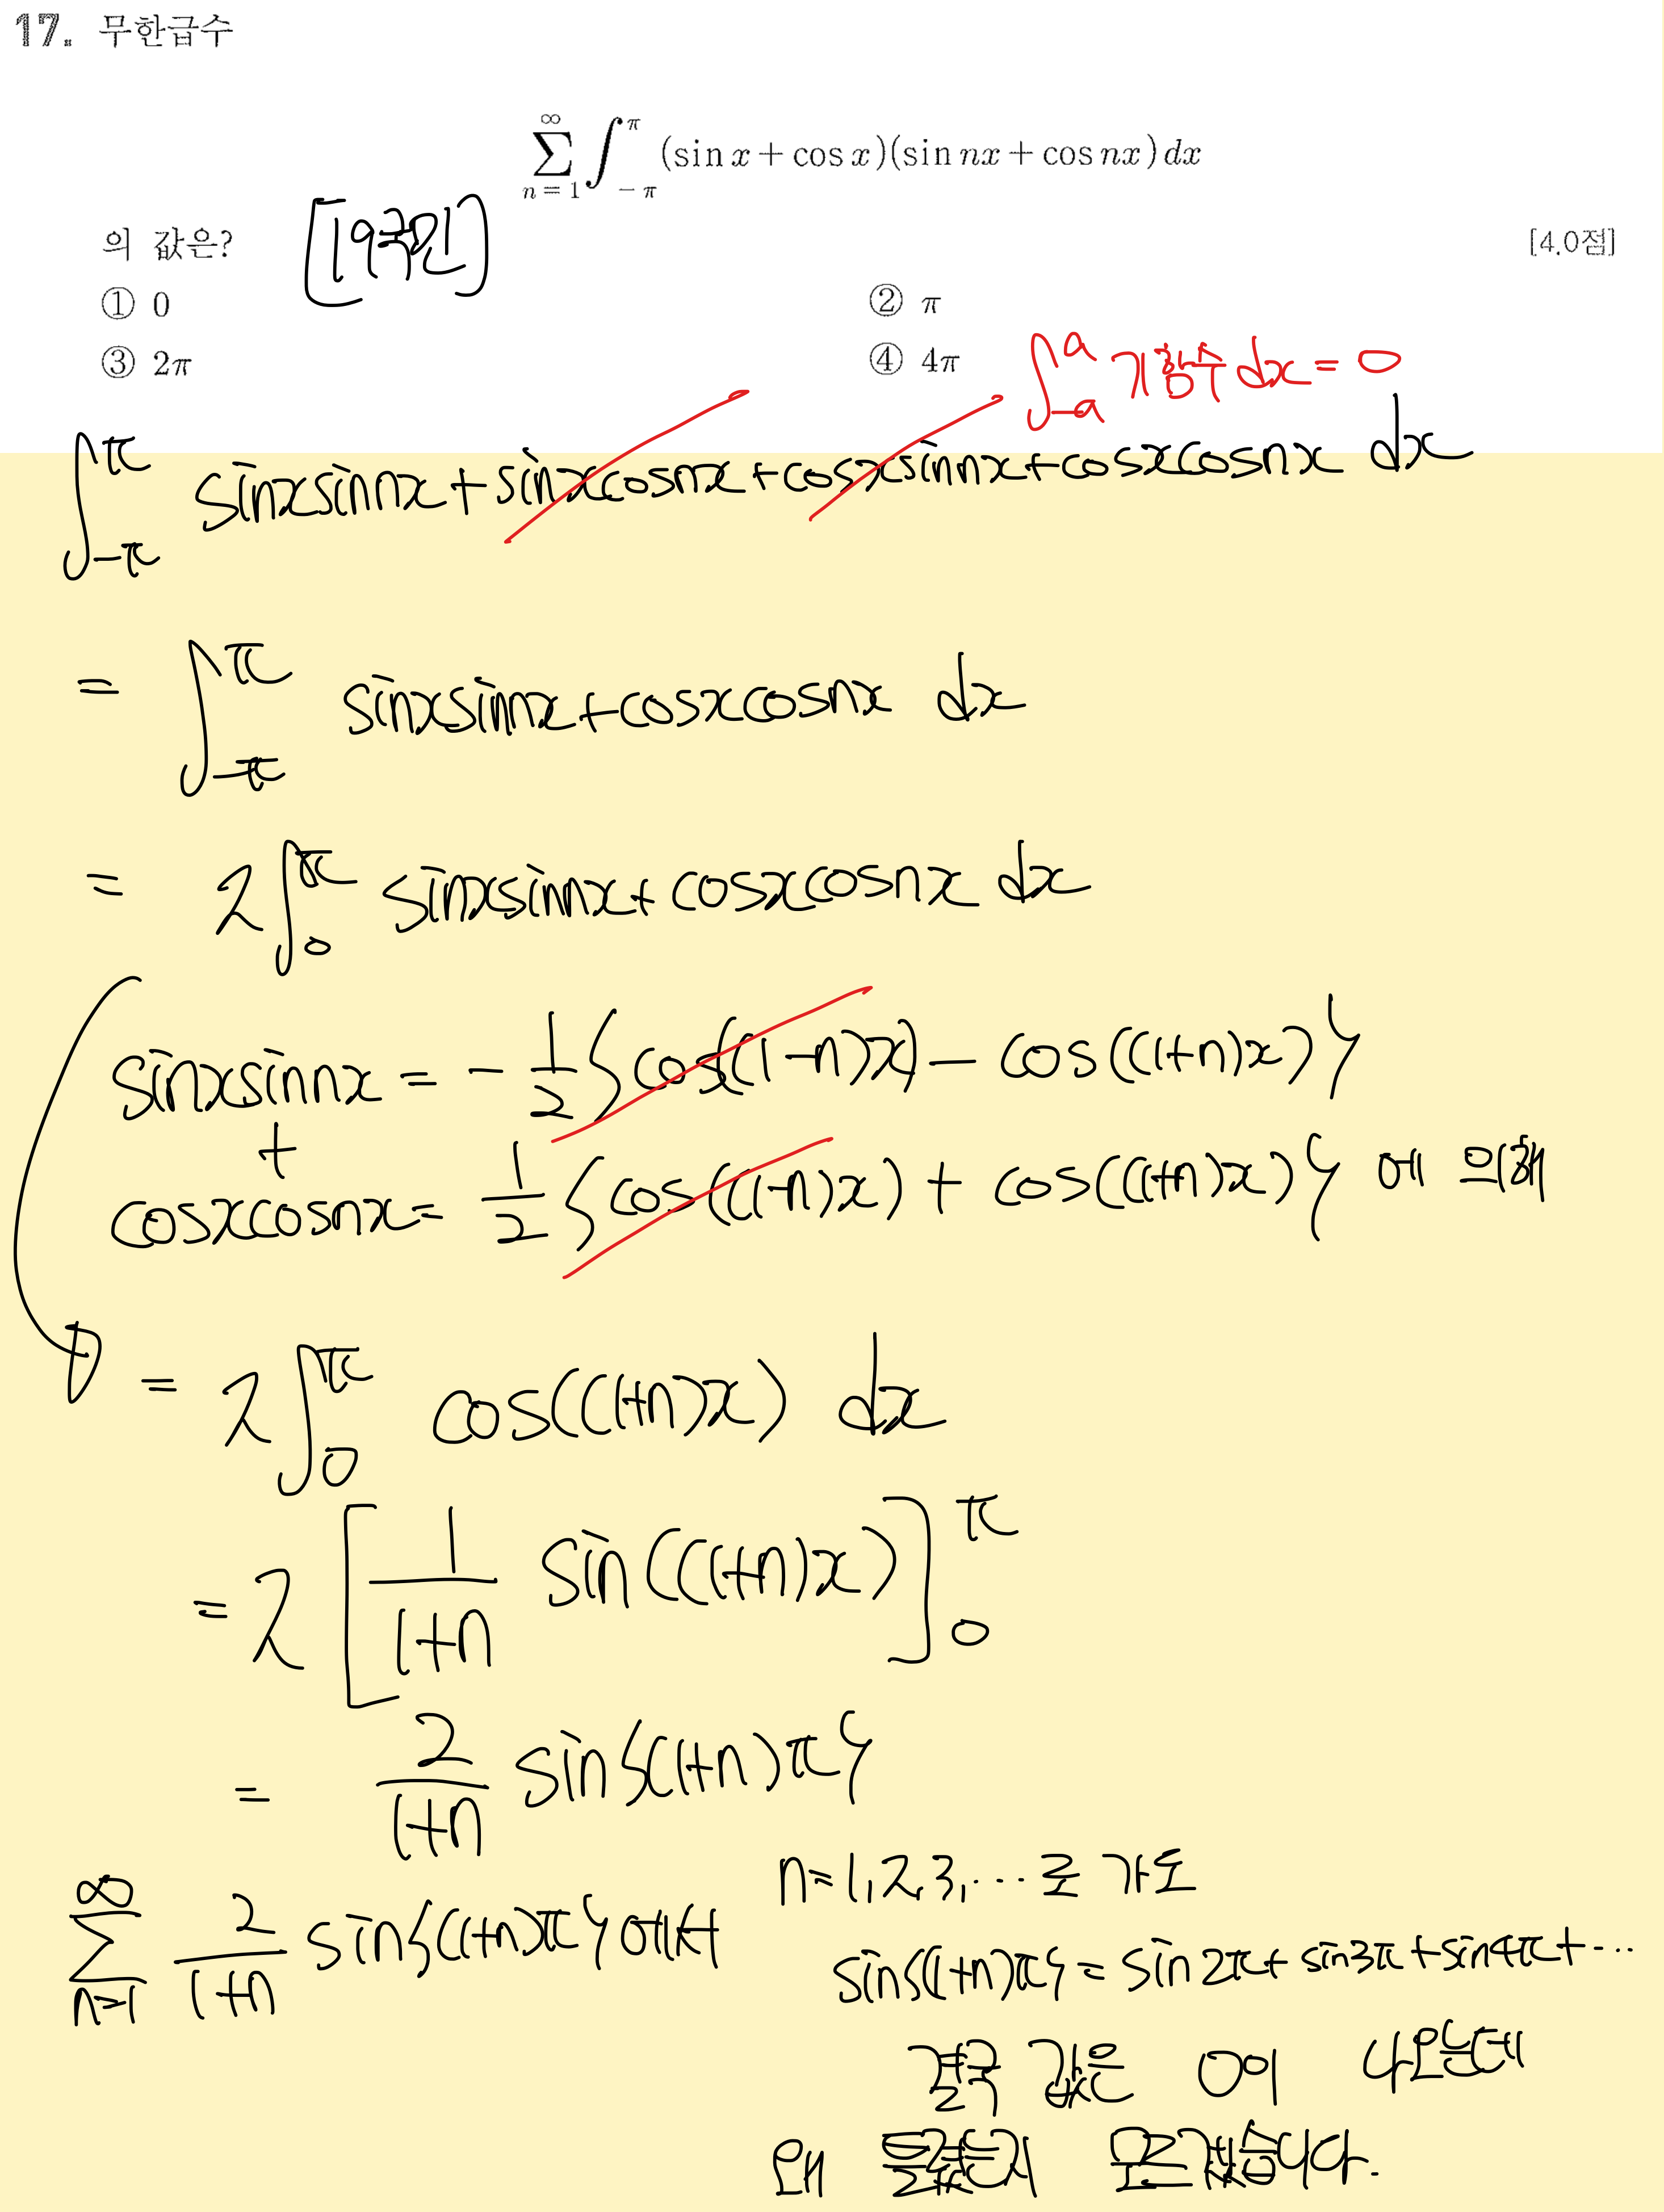 17. 무한급수
∑_{n=1}^{∞} ∫_{-π}^{π} (sin x + cos x)(sin nx + cos nx) dx
의 값은? [19국민] [4.0점]
① 0 ② π
③ 2π ④ 4π
∫_{-a}^{a} 기함수 dx = 0
∫_{-π}^{π} sinxsinnx + sinxcosnx + cosxsinnx + cosxcosnx dx
= ∫_{-π}^{π} sinxsinnx + cosxcosnx dx
= 2∫_{0}^{π} sinxsinnx + cosxcosnx dx
sinxsinnx = -1/2 {cos((1-n)x) - cos((1+n)x)}
+
cosxcosnx = 1/2 {cos((1-n)x) + cos((1+n)x)} 에 의해
= 2∫_{0}^{π} cos((1+n)x) dx
= 2 [1/(1+n) sin((1+n)x)]_{0}^{π}
= 2/(1+n) sin{(1+n)π}
∑_{n=1}^{∞} 2/(1+n) sin{(1+n)π} 에서
n=1,2,3,… 로 가도
sin{(1+n)π} = sin2π + sin3π + sin4π + …
결국 값은 0이 나오는데
왜 틀렸는지 모르겠습니다.